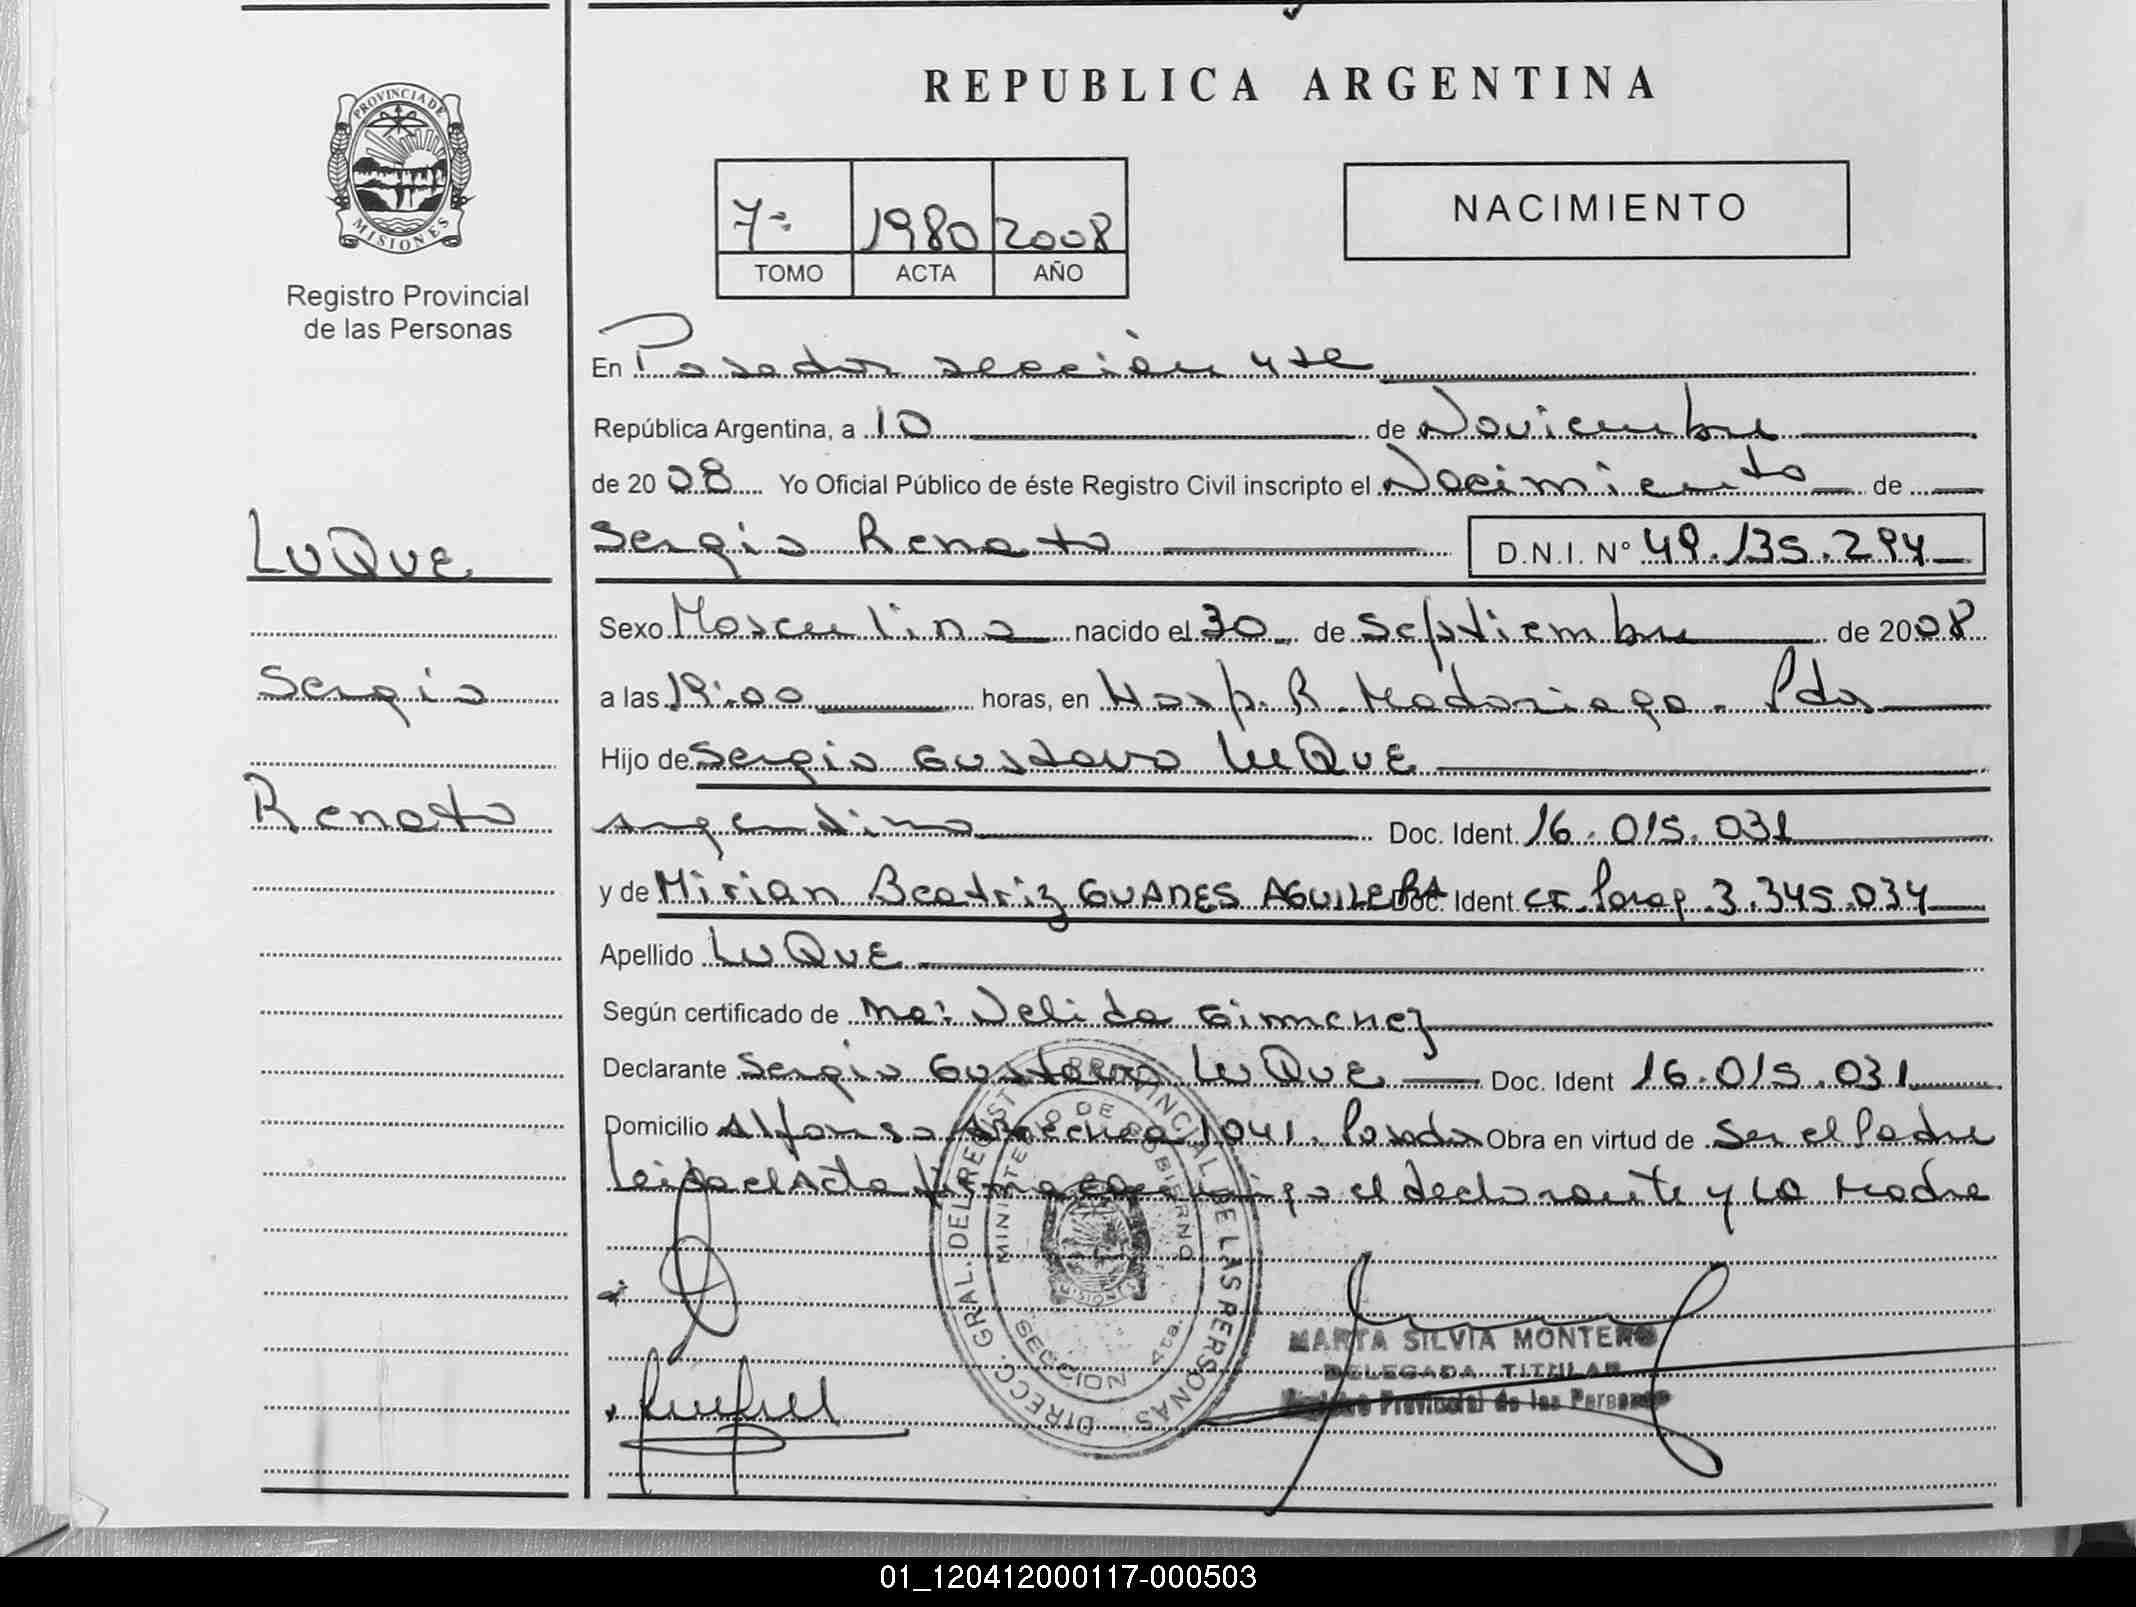 REPUBLICA ARGENTINA
PROVINCIA DE
MISIONES
Registro Provincial
de las Personas
7º 1980 2008
TOMO ACTA AÑO
NACIMIENTO
En Posadas sección 4ta
República Argentina, a 10 de Noviembre
de 2008 Yo Oficial Público de éste Registro Civil inscripto el Nacimiento de
LUQUE
Sergio Renato D.N.I. Nº 49.135.294
Sexo Masculino nacido el 30 de Septiembre de 2008
Sergio
a las 19:00 horas, en Hosp. R. Madariaga. Pdas
Hijo de Sergio Gustavo LUQUE
Renato
argentino Doc. Ident. 16.015.031
y de Mirian Beatriz GUANES AGUILERA Doc. Ident. CI. Parag 3.345.034
Apellido LUQUE
Según certificado de Nelida Gimenez
Declarante Sergio Gustavo LUQUE Doc. Ident 16.015.031
Domicilio Alfonso 1041. Posadas Obra en virtud de Ser el Padre
Leida el Acta firma conmigo el declarante y la Madre
DIRECC. GRAL. DEL REGIST. PROVINCIAL DE LAS PERSONAS
MINISTERIO DE GOBIERNO
MISIONES
SECCION 4ta.
MARTA SILVIA MONTERO
DELEGADA TITULAR
Registro Provincial de las Personas
01_120412000117-000503